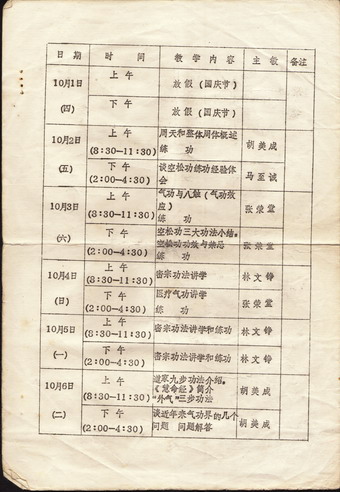 日期 时间 教学内容 主教 备注
10月1日 上午 放假(国庆节)
(四) 下午 放假(国庆节)
10月2日 上午 周天和整体周体概述
(8:30—11:30) 练功 胡美成
(五) 下午 谈空松功练功经验体
(2:00—4:30) 会 马至诚
10月3日 上午 气功与八触(气功效
(8:30—11:30) 应) 张荣堂
练功
(六) 下午 空松功三大功法小结。
空松功功效与禁忌
(2:00—4:30) 练功 张荣堂
10月4日 上午 密宗功法讲学 林文铮
(8:30—11:30)
(日) 下午 医疗气功讲学
(2:00—4:30) 练功 张荣堂
10月5日 上午 密宗功法讲学和练功 林文铮
(8:30—11:30)
(一) 下午 密宗功法讲学和练功 林文铮
(2:00—4:30)
10月6日 上午 道家九步功法介绍。
《慧命经》简介 胡美成
(8:30—11:30) “外气”三步功法
(二) 下午 谈近年来气功界的几个
(2:00—4:30) 问题 问题解答 胡美成